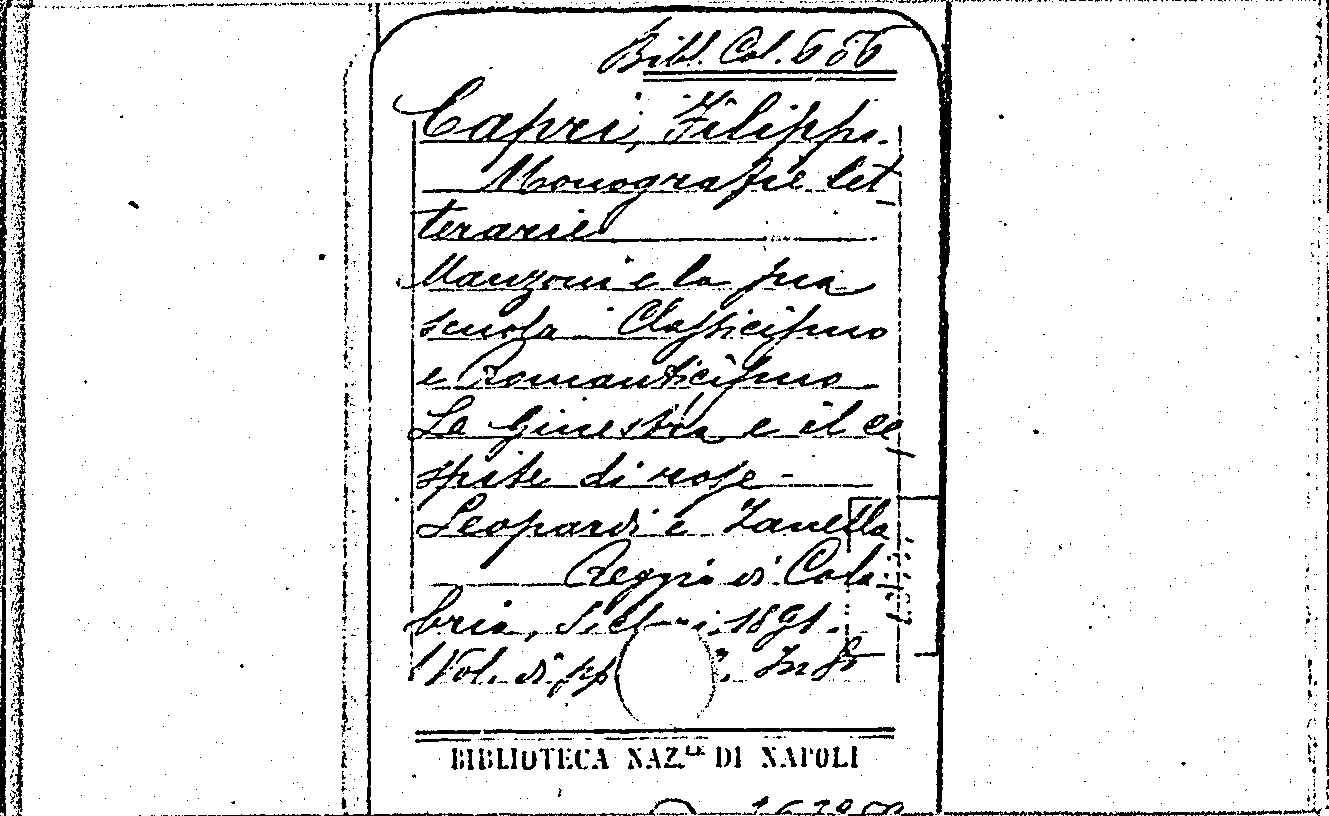 Bibl. Col. 6 56
Capri, Filippo.
Monografie let
terarie
Manzoni e la sua
scuola Classicismo
e Romanticismo
La Ginestra e il ce
spite di rose -
Leopardi e Zanella
Reggio di Cala
bria, 1891.
1 Vol. di pp In 8º
BIBLIOTECA NAZ.LE DI NAPOLI